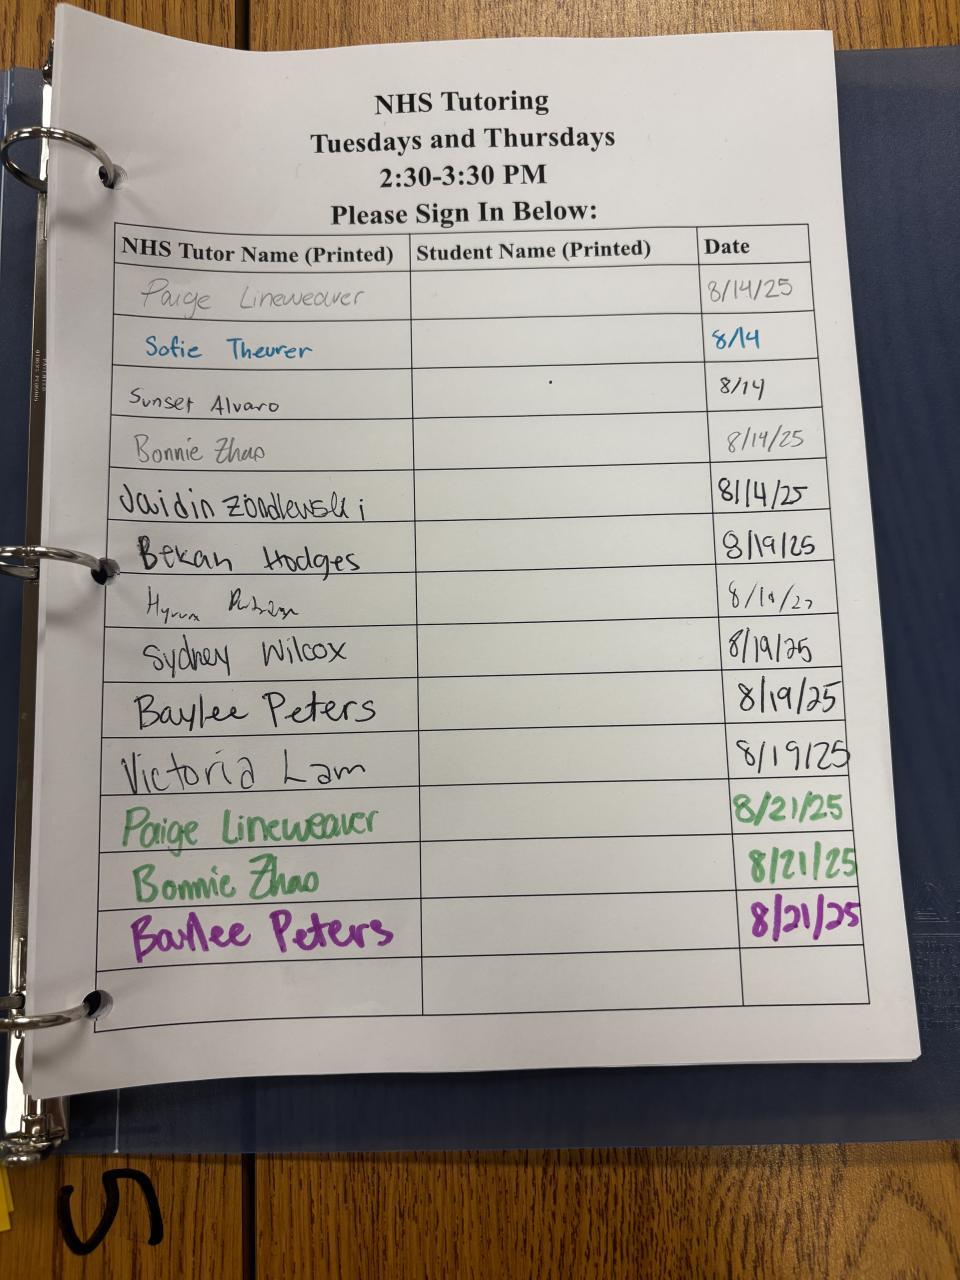 NHS Tutoring
Tuesdays and Thursdays
2:30-3:30 PM
Please Sign In Below:
NHS Tutor Name (Printed) Student Name (Printed) Date
Paige Lineweaver 8/14/25
Sofie Theurer 8/14
Sunset Alvaro 8/14
Bonnie Zhao 8/14/25
Jaidin Zondlewski 8/14/25
Bekah Hodges 8/19/25
Hyrum
Sydney Wilcox 8/19/25
Baylee Peters 8/19/25
Victoria Lam 8/19/25
Paige Lineweaver 8/21/25
Bonnie Zhao 8/21/25
Baylee Peters 8/21/25
5